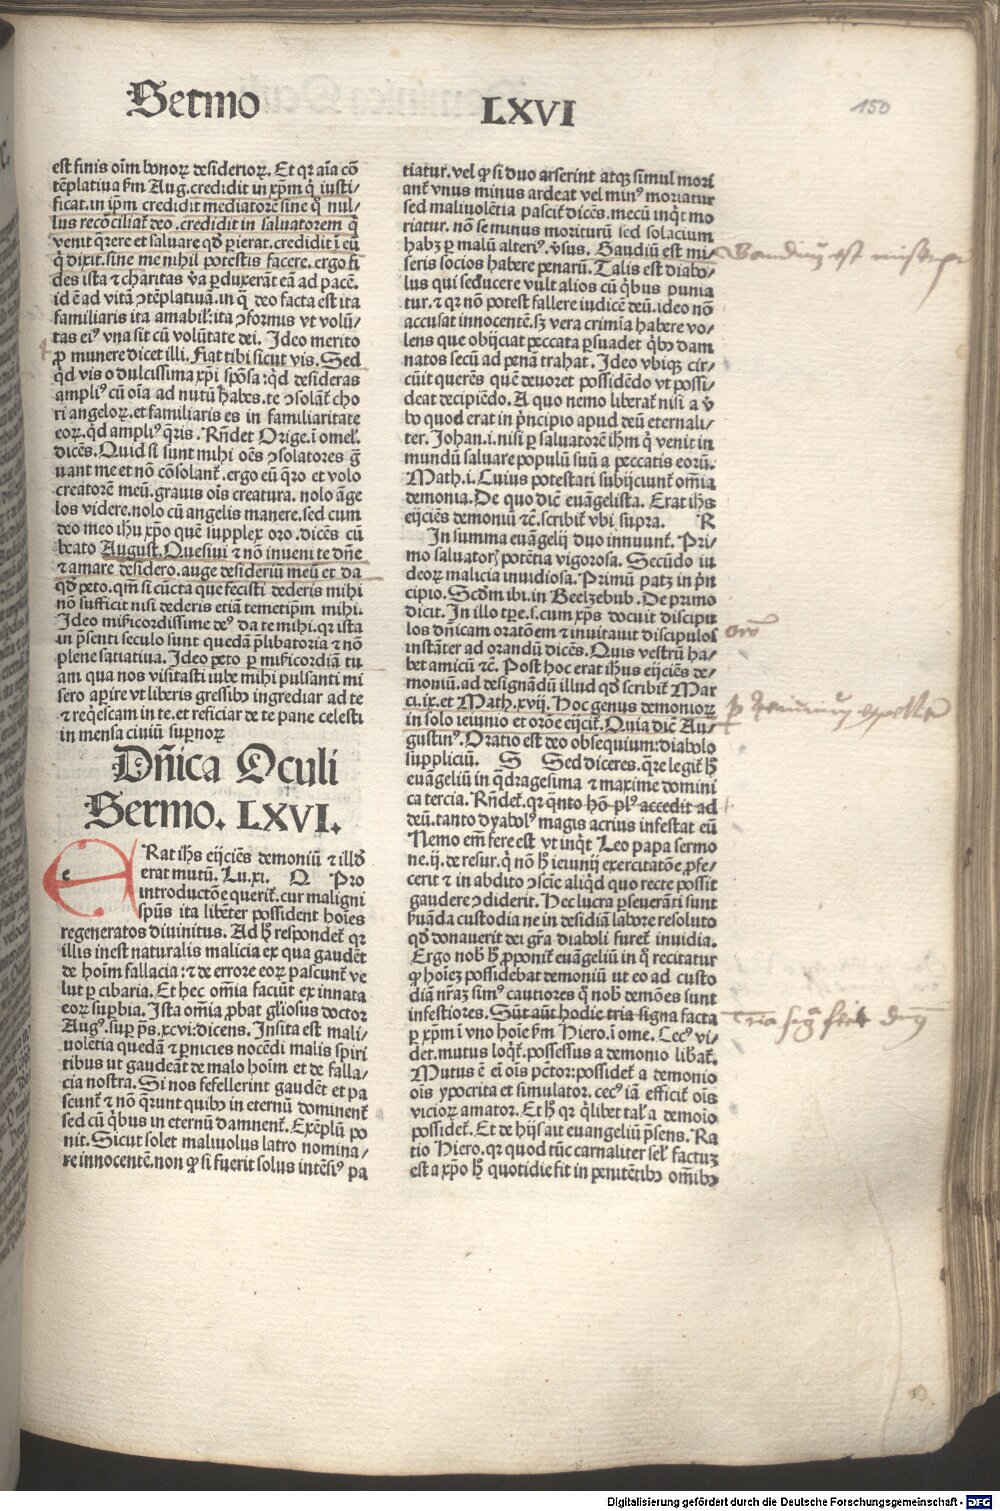 Sermo
LXVI
150
est finis oīm bonoꝝ desiderioꝝ. Et qꝛ aīa cō
tēplatiua ẜm Aug. credidit in xp̄m q̇ iusti/
ficat. in ip̄m credidit mediatorē sine q̊ nul/
lus recōciliat̉ deo. credidit in saluatorem q̇
venit q̄rere et saluare qḋ ꝑierat. credidit ī eū
q̇ dixit. sine me nihil potestis facere. ergo fi
des ista ⁊ charitas v̓a ꝑduxerāt eā ad pacē.
id ē ad vitā ↄtēplatiuā. in q̄ deo facta est ita
familiaris ita amabil̓. ita ↄformis vt volū/
tas ei⁹ vna sit cū volūtate dei. Ideo merito
ꝓ munere dicet illi. Fiat tibi sicut vis. Sed
q̇d vis o dulcissima xp̄i spōsa: q̇d desideras
ampli⁹ cū oīa ad nutū habes. te ↄsolant̉ cho
ri angeloꝝ. et familiaris es in familiaritate
eoꝝ. q̇d ampli⁹ q̄ris. Rn̄det Orige. ī omel̓.
dicēs. Quid sī sunt mihi oēs ↄsolatores ḡ
uant me et nō cōsolant̉. ergo eū q̄ro et volo
creatorē meū. grauis oīs creatura. nolo āge
los videre. nolo cū angelis manere. sed cum
deo meo ihu xp̄o quē supplex oro. dicēs cū
beato August. Quesiui ⁊ nō inveni te dn̄e
⁊ amare desidero. auge desideriū meū et da
qḋ peto. qm̄ si cūcta que fecisti dederis mihi
nō sufficit nisi dederis etiā temetip̄m mihi.
Ideo mīcordissime de⁹ da te mihi. qꝛ ista
in p̄senti seculo sunt quedā p̄libatoria ⁊ nō
plene satiatiua. Ideo peto ꝑ mīcordiā tu
am qua nos visitasti iube mihi pulsanti mi
sero aperire vt liberis gressibꝰ ingrediar ad te
⁊ req̇escam in te. et reficiar de te pane celesti
in mensa ciuiū suꝑnoꝝ
Dn̄ica Oculi
Sermo. LXVI.
ERat ihs eijciēs demoniū ⁊ illḋ
erat mutū. Lu. xi. Q Pro
introductōe querit̉. cur maligni
spūs ita libēter possident hoīes
regeneratos diuinitus. Ad h̄ respondet̉ qꝛ
illis inest naturalis malicia ex qua gaudēt
de hoīm fallacia: ⁊ de errore eoꝝ pascunt̉ ve
lut ꝑ cibaria. Et hec om̄ia faciūt ex innata
eoꝝ suꝑbia. Ista om̄ia ꝓbat gl̄iosus doctor
Aug⁹. suꝑ ps. xcvi. dicens. Insita est mali/
uolētia quedā ⁊ ꝑnicies nocēdi malis spiri
tibus ut gaudeāt de malo hoīm et de falla/
cia nostra. Si nos fefellerint gaudēt et pa
scunt̉ ⁊ nō q̄runt quibꝰ in eternū dominent̉
sed cū q̇bus in eternū damnent̉. Exēplū po
nit. Sicut solet maliuolus latro nomina/
re innocentē. non ꝙ si fuerit solus intēsi⁹ pa
tiatur. vel ꝙ si duo arserint atqꝫ simul mori
ant̉ vnus minus ardeat vel min⁹ moriatur
sed maliuolētia pascit̉ dicēs. mecū inq̇t mo
riatur. nō se minus moriturū sed solacium
habꝫ ꝑ malū alteri⁹. v̓sus. Gaudiū est mi/
seris socios habere penarū. Talis est diabo/
lus qui seducere vult alios cū q̇bus punia
tur. ⁊ qꝛ non potest fallere iudicē deū. ideo nō
accusat innocentē. sꝫ vera crimīa habere vo/
lens que obijciat peccata ꝑsuadet q̇bꝰ dam
natos secū ad penā trahat. Ideo vbiqꝫ cir/
cūit querēs quē deuoret possidēdo vt possi/
deat decipiēdo. A quo nemo liberat̉ nisi a v̓
bo quod erat in p̄ncipio apud deū eternali/
ter. Johan. i. nisi ꝑ saluatorē ihm q̇ venit in
mundū saluare populū suū a peccatis eorū.
Math. i. Cuius potestati subijciunt̉ om̄ia
demonia. De quo dicit̉ euāgelista. Erat ihs
eijciēs demoniū ⁊c̄. scribit̉ vbi supra. R
In summa euāgelij duo innuunt̉. Pri/
mo saluatorꝭ potētia vigorosa. Secūdo iu
deoꝝ malicia inuidiosa. Primū patꝫ in p̄n
cipio. Scḋm ibi. in Beelzebub. De primo
dicit. In illo tꝑe. s. cum xp̄s docuit discipu
los dn̄icam oratōem ⁊ inuitauit discipulos
instāter ad orandū dicēs. Quis vestrū ha/
bet amicū ⁊c̄. Post hoc erat ihus eijciēs de/
moniū. ad designādū illud qḋ scribit̉ Mar
ci. ix. et Math. xvij. Hoc genus demonioꝝ
in solo ieiunio et orōe eijcit̉. Quia dic̄ Au/
gustin⁹. Oratio est deo obsequium: diabolo
suppliciū. S Sed diceres. q̄re legit̉ h̄
euāgeliū in q̄dragesima ⁊ maxime domini
ca tercia. Rn̄det̉. qꝛ q̄nto hō pl⁹ accedit ad
deū. tanto dyabol⁹ magis acrius infestat eū
Nemo em̄ fere est vt inq̇t Leo papa sermo
ne. ij. de resur. q̇ nō h̄ ieiunij exercitatōe ꝓfe/
cerit ⁊ in abdito ↄscīe aliq̇d quo recte possit
gaudere ↄdiderit. Hec lucra ꝑseuerāti sunt
ẜuāda custodia ne in desidiā labore resoluto
qḋ donauerit dei gr̄a diaboli furet̉ inuidia.
Ergo nobꝭ h̄ ꝓponit̉ euāgeliū in q̊ recitatur
ꝙ hoīez possidebat demoniū ut eo ad custo
diā nr̄az sim⁹ cautiores q̊ nobꝭ demōes sunt
infestiores. Sūt aūt hodie tria signa facta
ꝑ xp̄m ī vno hoīe ẜm Hiero. ī ome. Cec⁹ vi/
det. mutus loq̇t̉. possessus a demonio libat̉.
Mutus ē eī oīs pctōr: possidet̉ a demonio
oīs ypocrita et simulator. cec⁹ iā efficit̉ oīs
vicioꝝ amator. Et h̄ qꝛ q̇libet tal̓ a demoīo
possidet̉. Et de hijs ait euangeliū p̄sens. Ra
tio Hiero. qꝛ quod tūc carnaliter sel̓ factuꝫ
est a xp̄o h̄ quotidie fit in penitētibꝰ om̄ibꝰ
Gaudiū est miseris
orō
Digitalisierung gefördert durch die Deutsche Forschungsgemeinschaft - DFG